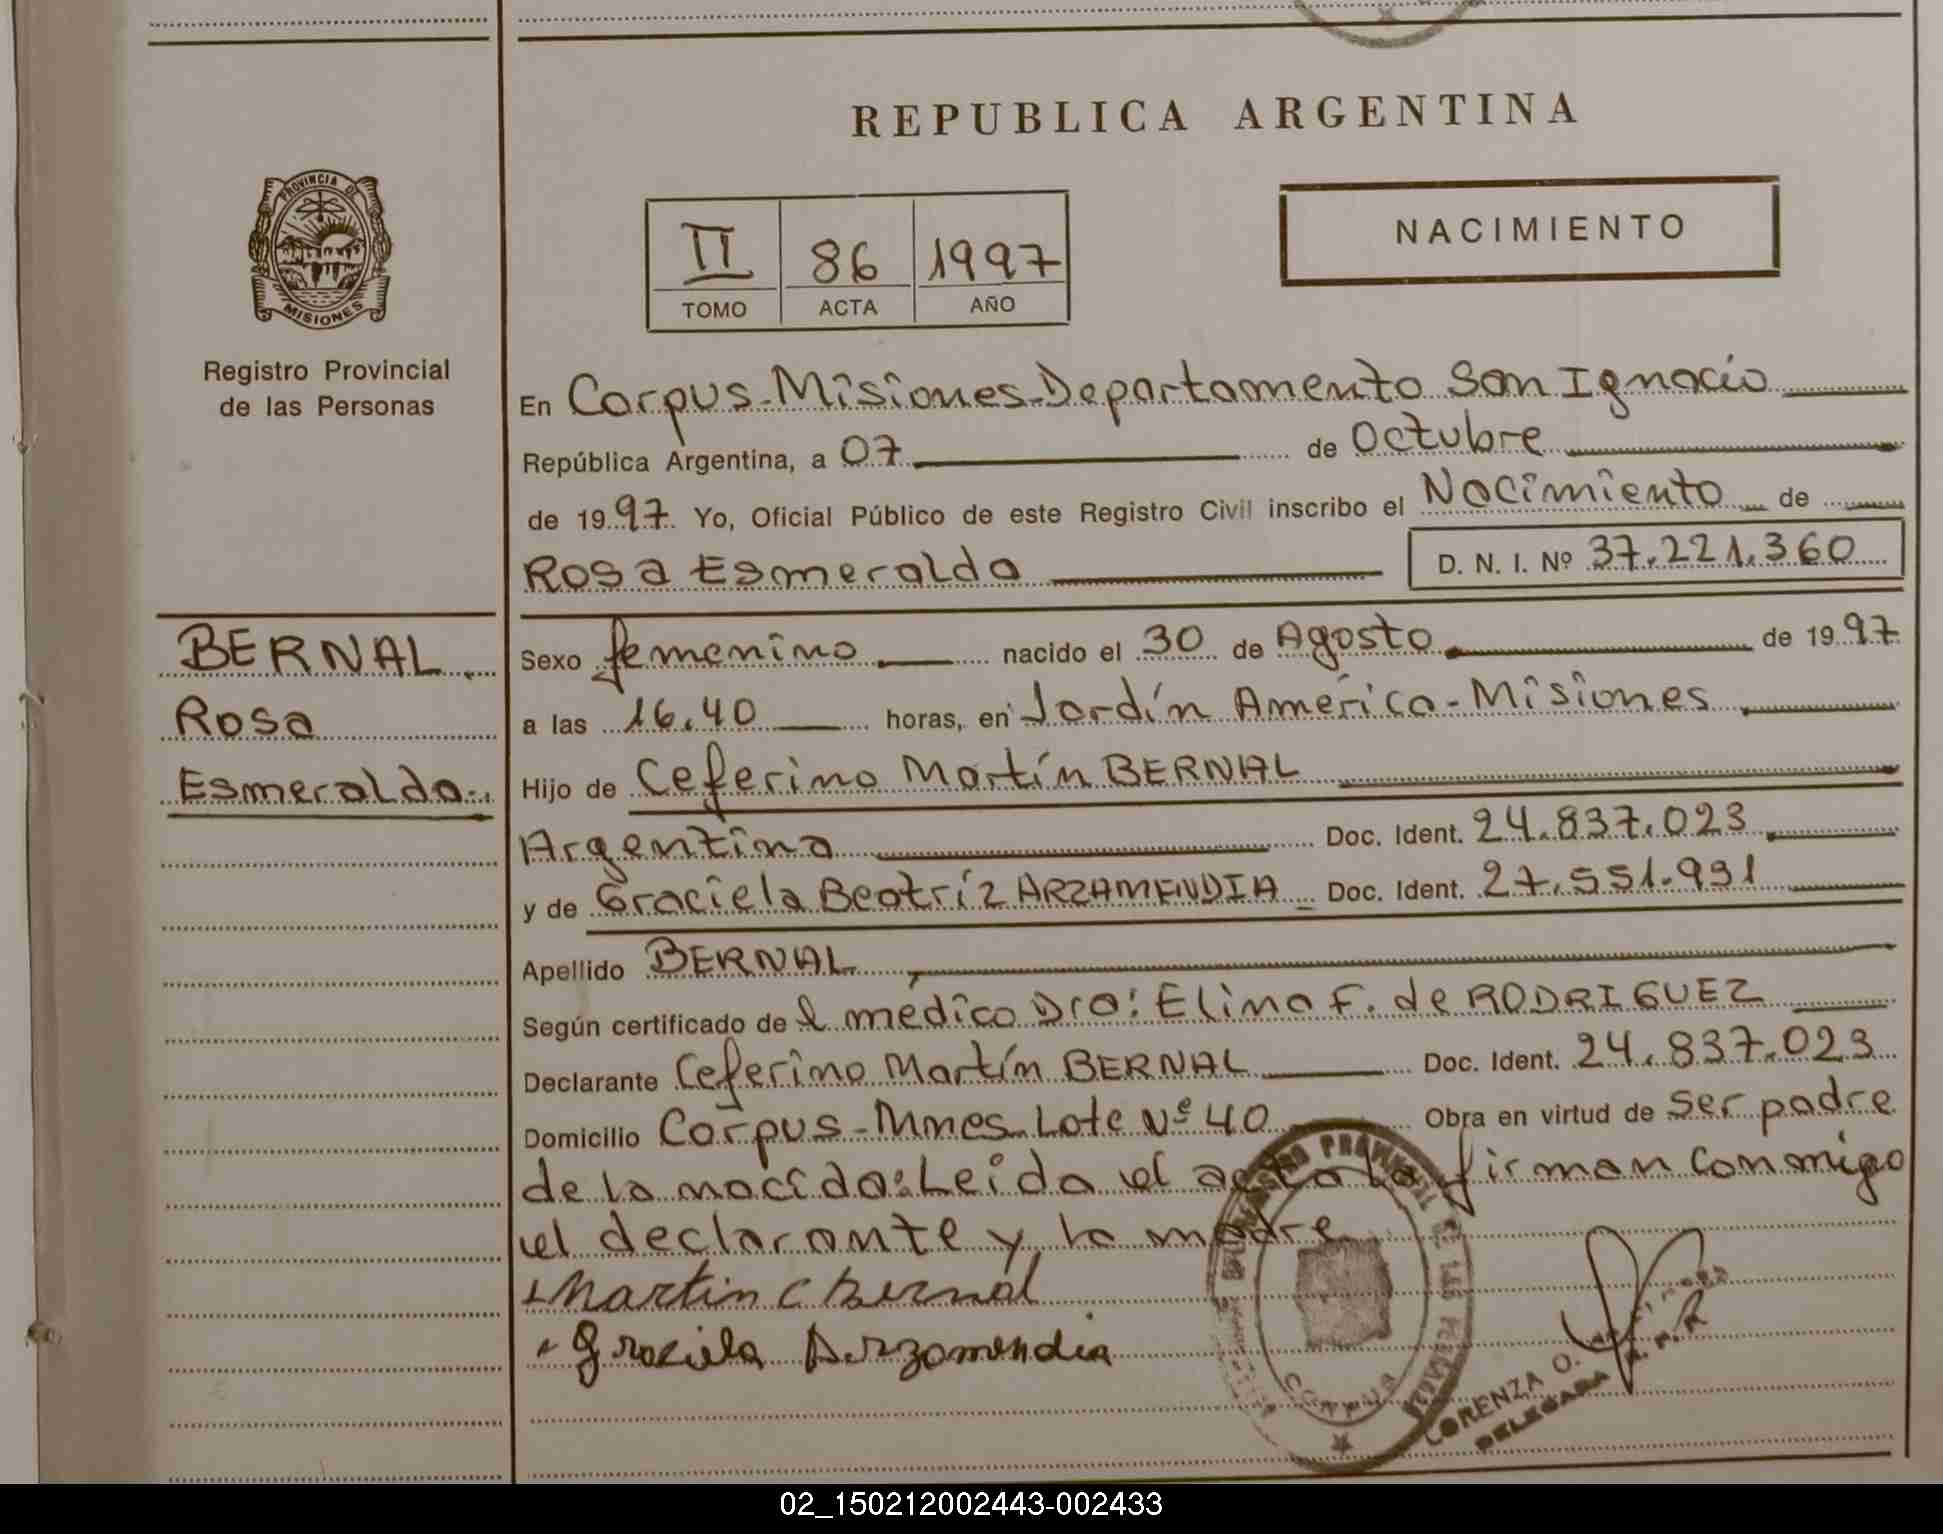 REPUBLICA ARGENTINA
PROVINCIA DE
MISIONES
Registro Provincial
de las Personas
II 86 1997
TOMO ACTA AÑO
NACIMIENTO
En Corpus-Misiones-Departamento San Ignacio
República Argentina, a 07 de Octubre
de 1997 Yo, Oficial Público de este Registro Civil inscribo el Nacimiento de
Rosa Esmeralda D. N. I. Nº 37.221.360
BERNAL
Rosa
Esmeralda
Sexo femenino nacido el 30 de Agosto de 1997
a las 16.40 horas, en Jardín América-Misiones
Hijo de Ceferino Martín BERNAL
Argentina Doc. Ident. 24.837.023
y de Graciela Beatríz ARZAMENDIA Doc. Ident. 27.551.991
Apellido BERNAL
Según certificado de l médico Dra: Elina F. de RODRIGUEZ
Declarante Ceferino Martín BERNAL Doc. Ident. 24.837.023
Domicilio Corpus-Mnes Lote Nº 40 Obra en virtud de ser padre
de la nacida: Leida el acta la firman conmigo
el declarante y la madre
Martin C Bernal
Graciela Arzamendia
REGISTRO PROVINCIAL DE LAS PERSONAS
CORPUS
LORENZA O.
DELEGADA R. P. P.
02_150212002443-002433